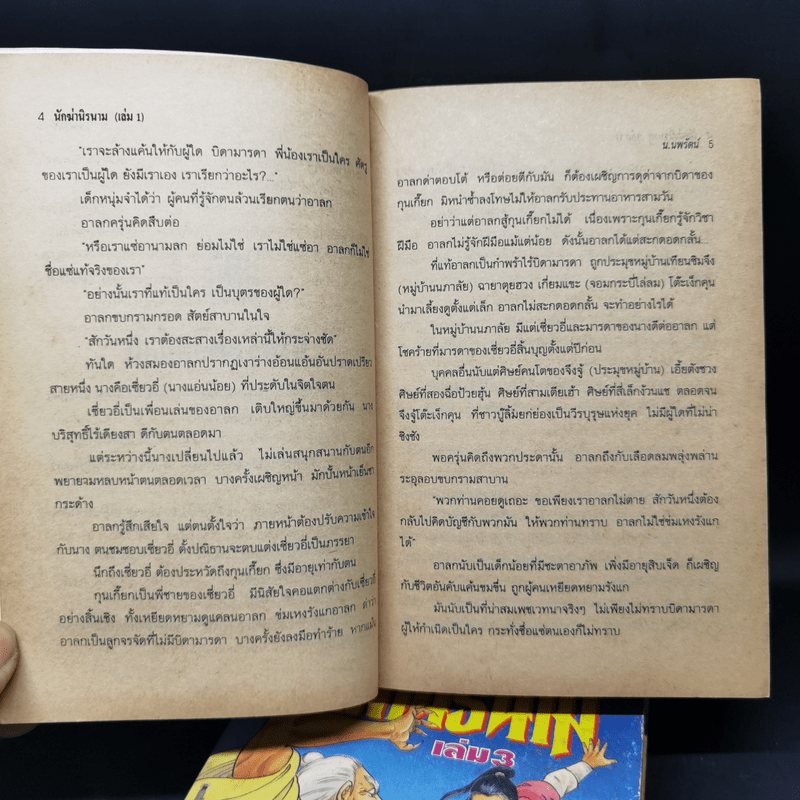 4 นักฆ่านิรนาม (เล่ม 1)
"เราจะล้างแค้นให้กับผู้ใด บิดามารดา พี่น้องเราเป็นใคร ศัตรู
ของเราเป็นผู้ใด ยังมีเราเอง เราเรียกว่าอะไร?..."
เด็กหนุ่มจำได้ว่า ผู้คนที่รู้จักตนล้วนเรียกตนว่าอาลก
อาลกครุ่นคิดสืบต่อ
"หรือเราแซ่อานามลก ย่อมไม่ใช่ เราไม่ใช่แซ่อา อาลกก็ไม่ใช่
ชื่อแซ่แท้จริงของเรา"
"อย่างนั้นเราที่แท้เป็นใคร เป็นบุตรของผู้ใด?"
อาลกขบกรามกรอด สัตย์สาบานในใจ
"สักวันหนึ่ง เราต้องสะสางเรื่องเหล่านี้ให้กระจ่างชัด"
ทันใด ห้วงสมองอาลกปรากฏเงาร่างอ้อนแอ้นอันปราดเปรียว
สายหนึ่ง นางคือเซี่ยวอี่ (นางแอ่นน้อย) ที่ประดับในจิตใจตน
เซี่ยวอี่เป็นเพื่อนเล่นของอาลก เติบใหญ่ขึ้นมาด้วยกัน นาง
บริสุทธิ์ไร้เดียงสา ดีกับตนตลอดมา
แต่ระหว่างนี้นางเปลี่ยนไปแล้ว ไม่เล่นสนุกสนานกับตนอีก
พยายามหลบหน้าตนตลอดเวลา บางครั้งเผชิญหน้า มักปั้นหน้าเย็นชา
กระด้าง
อาลกรู้สึกเสียใจ แต่ตนตั้งใจว่า ภายหน้าต้องปรับความเข้าใจ
กับนาง ตนชมชอบเซี่ยวอี่ ตั้งปณิธานจะตบแต่งเซี่ยวอี่เป็นภรรยา
นึกถึงเซี่ยวอี่ ต้องประหวัดถึงกุนเกี๊ยก ซึ่งมีอายุเท่ากับตน
กุนเกี๊ยกเป็นพี่ชายของเซี่ยวอี่ มีนิสัยใจคอแตกต่างกับเซี่ยวอี่
อย่างสิ้นเชิง ทั้งเหยียดหยามดูแคลนอาลก ข่มเหงรังแกอาลก ด่าว่า
อาลกเป็นลูกจรจัดที่ไม่มีบิดามารดา บางครั้งยังลงมือทำร้าย หากแม้น
น.นพรัตน์ 5
อาลกด่าตอบโต้ หรือต่อยตีกับมัน ก็ต้องเผชิญการดุด่าจากบิดาของ
กุนเกี๊ยก มิหนำซ้ำลงโทษไม่ให้อาลกรับประทานอาหารสามวัน
อย่าว่าแต่อาลกสู้กุนเกี๊ยกไม่ได้ เนื่องเพราะกุนเกี๊ยกรู้จักวิชา
ฝีมือ อาลกไม่รู้จักฝีมือแม้แต่น้อย ดังนั้นอาลกได้แต่สะกดอดกลั้น...
ที่แท้อาลกเป็นกำพร้าไร้บิดามารดา ถูกประมุขหมู่บ้านเทียนซิมจึง
(หมู่บ้านนภาลัย) ฉายาตุยฮวง เกี่ยมแขะ (จอมกระบี่ไล่ลม) โต๊ะเง็กคุน
นำมาเลี้ยงดูตั้งแต่เล็ก อาลกไม่สะกดอดกลั้น จะทำอย่างไรได้
ในหมู่บ้านนภาลัย มีแต่เซี่ยวอี่และมารดาของนางดีต่ออาลก แต่
โชคร้ายที่มารดาของเซี่ยวอี่สิ้นบุญตั้งแต่ปีก่อน
บุคคลอื่นนับแต่ศิษย์คนโตของจึงจู้ (ประมุขหมู่บ้าน) เอี้ยตังชวง
ศิษย์ที่สองฉื่อป้วยฮุ้น ศิษย์ที่สามเตียเฮ้า ศิษย์ที่สี่เล็กง้วนแซ ตลอดจน
จึงจู้โต๊ะเง็กคุน ที่ชาวบู๊ลิ้มยกย่องเป็นวีรบุรุษแห่งยุค ไม่มีผู้ใดที่ไม่น่า
ชิงชัง
พอครุ่นคิดถึงพวกประดานั้น อาลกถึงกับเลือดลมพลุ่งพล่าน
ระอุลอบขบกรามสาบาน
"พวกท่านคอยดูเถอะ ขอเพียงเราอาลกไม่ตาย สักวันหนึ่งต้อง
กลับไปคิดบัญชีกับพวกมัน ให้พวกท่านทราบ อาลกไม่ใช่ข่มเหงรังแก
ได้"
อาลกนับเป็นเด็กน้อยที่มีชะตาอาภัพ เพิ่งมีอายุสิบเจ็ด ก็เผชิญ
กับชีวิตอันคับแค้นขมขื่น ถูกผู้คนเหยียดหยามรังแก
มันนับเป็นที่น่าสมเพชเวทนาจริงๆ ไม่เพียงไม่ทราบบิดามารดา
ผู้ให้กำเนิดเป็นใคร กระทั่งชื่อแซ่ตนเองก็ไม่ทราบ
เล่ม 3